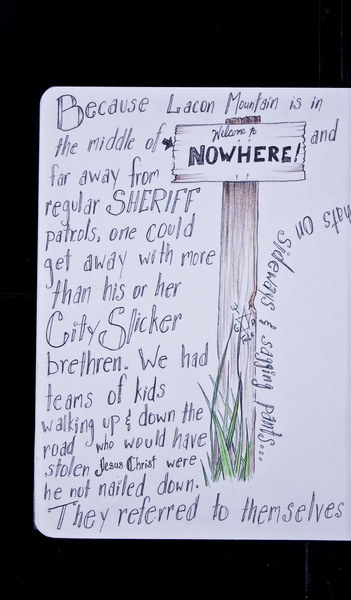 Because Lacon Mountain is in
the middle of
Welcome to
NOWHERE!
and
far away from
regular SHERIFF
patrols, one could
get away with more
than his or her
City Slicker
brethren. We had
teams of kids
walking up & down the
road who would have
stolen Jesus Christ were
he not nailed down.
They referred to themselves
hats on
sideways & sagging pants...